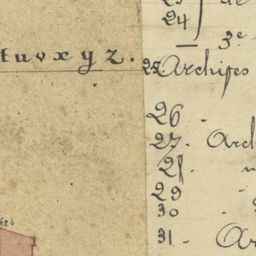 24
3e
t u v x y z .
25 Archipes
26
27. Arch
28
29
30
31 - Ar